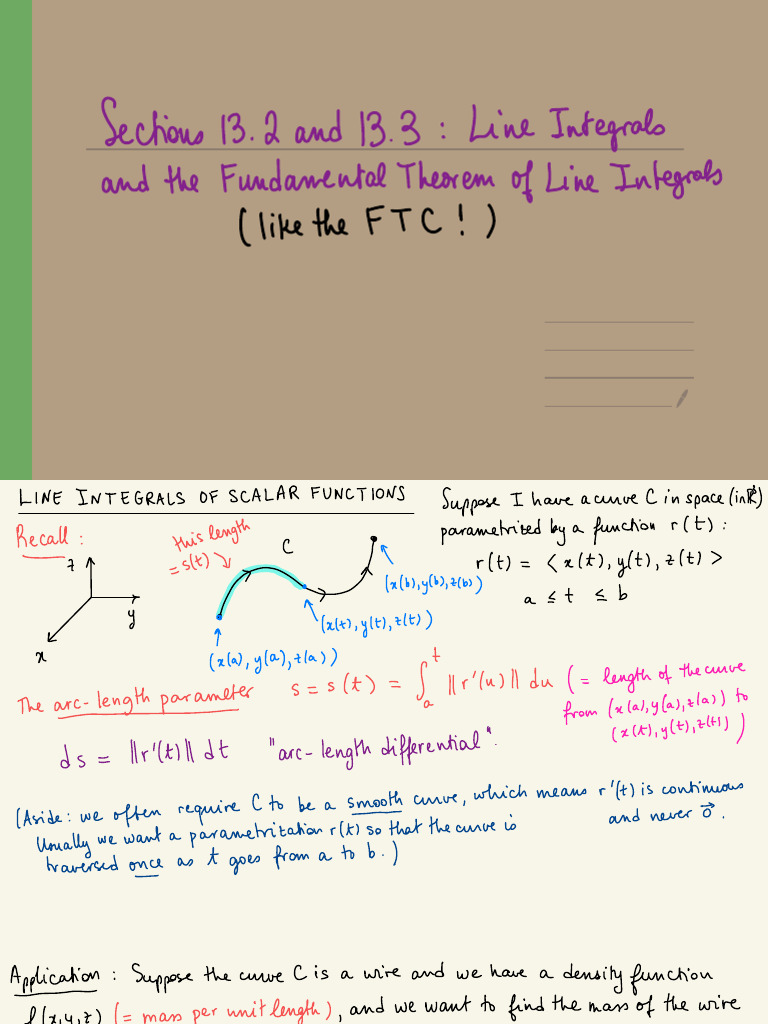 Sections 13.2 and 13.3 : Line Integrals
and the Fundamental Theorem of Line Integrals
(like the FTC!)
LINE INTEGRALS OF SCALAR FUNCTIONS
Suppose I have a curve C in space (in ℝ³)
parametrized by a function r(t) :
r(t) = ⟨x(t), y(t), z(t)⟩
a ≤ t ≤ b
Recall :
this length
= s(t)
C
z
y
x
(x(b), y(b), z(b))
(x(t), y(t), z(t))
(x(a), y(a), z(a))
The arc-length parameter s = s(t) = ∫ₐᵗ ||r'(u)|| du (= length of the curve
from (x(a), y(a), z(a)) to
(x(t), y(t), z(t)))
ds = ||r'(t)|| dt "arc-length differential".
(Aside : we often require C to be a smooth curve, which means r'(t) is continuous
and never 0⃗.
Usually we want a parametrization r(t) so that the curve is
traversed once as t goes from a to b.)
Application : Suppose the curve C is a wire and we have a density function
f(x,y,z) (= mass per unit length), and we want to find the mass of the wire